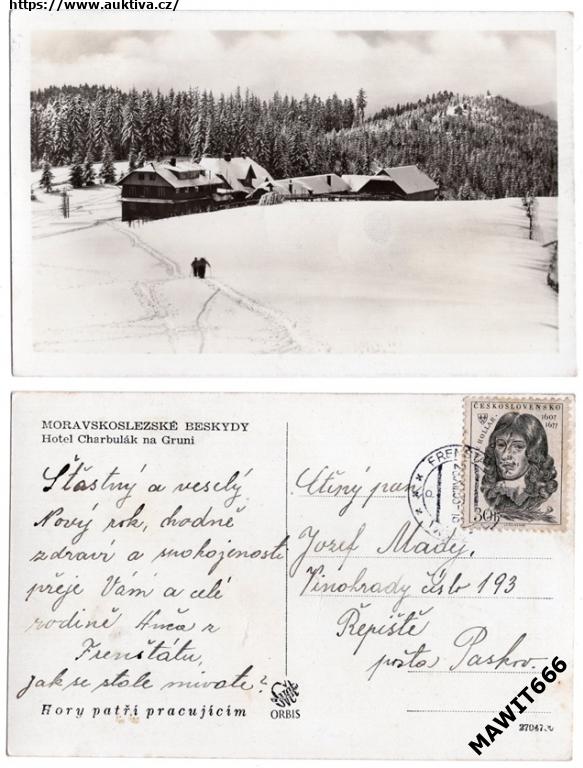 https://www.auktiva.cz/
MORAVSKOSLEZSKÉ BESKYDY
Hotel Charbulák na Gruni
Šťastný a veselý
Nový rok, hodně
zdraví a spokojenosti
přeje Vám a celé
rodině z
Frenštátu,
jak se stále míváte?
Hory patří pracujícím
Svět
ORBIS
ČESKOSLOVENSKO
HOLLAR
1607
1677
30h
FRENŠT
Ctěný pan
Jozef Madý,
Vinohrady číslo 193
Řepiště
pošta Paskov.
MAWIT666